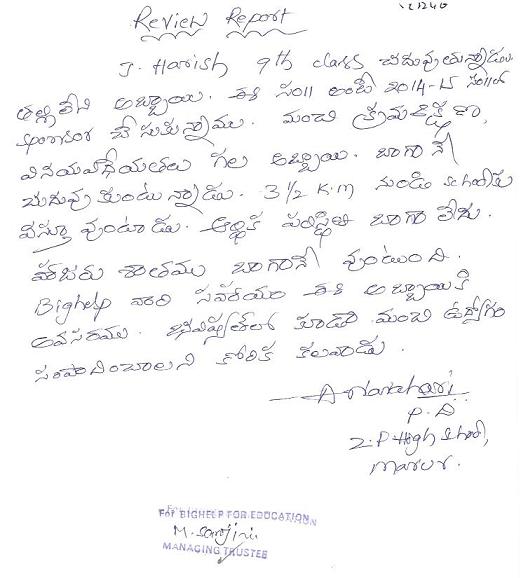 Review Report
J. Harish 9th class చదువుతున్నాడు.
తల్లి లేని అబ్బాయి. ఈ సం॥ అంటే 2014-15 సం॥లో
sponsor చేసుకున్నాము. మంచి క్రమశిక్షణ,
వినయవిధేయతలు గల అబ్బాయి. బాగానే
చదువుకుంటున్నాడు. 3 1/2 K.m నుండి schoolకు
వస్తూ వుంటాడు. ఆర్థిక పరిస్థితి బాగా లేదు.
హాజరు శాతము బాగానే వుంటుంది.
Bighelp వారి సహాయం ఈ అబ్బాయికి
అవసరము. భవిష్యత్‌లో కూడా మంచి ఉద్యోగం
సంపాదించాలని కోరిక కలవాడు.
P.D.
Z.P High School,
Marur.
For BIGHELP FOR EDUCATION
M. Sarojini
MANAGING TRUSTEE